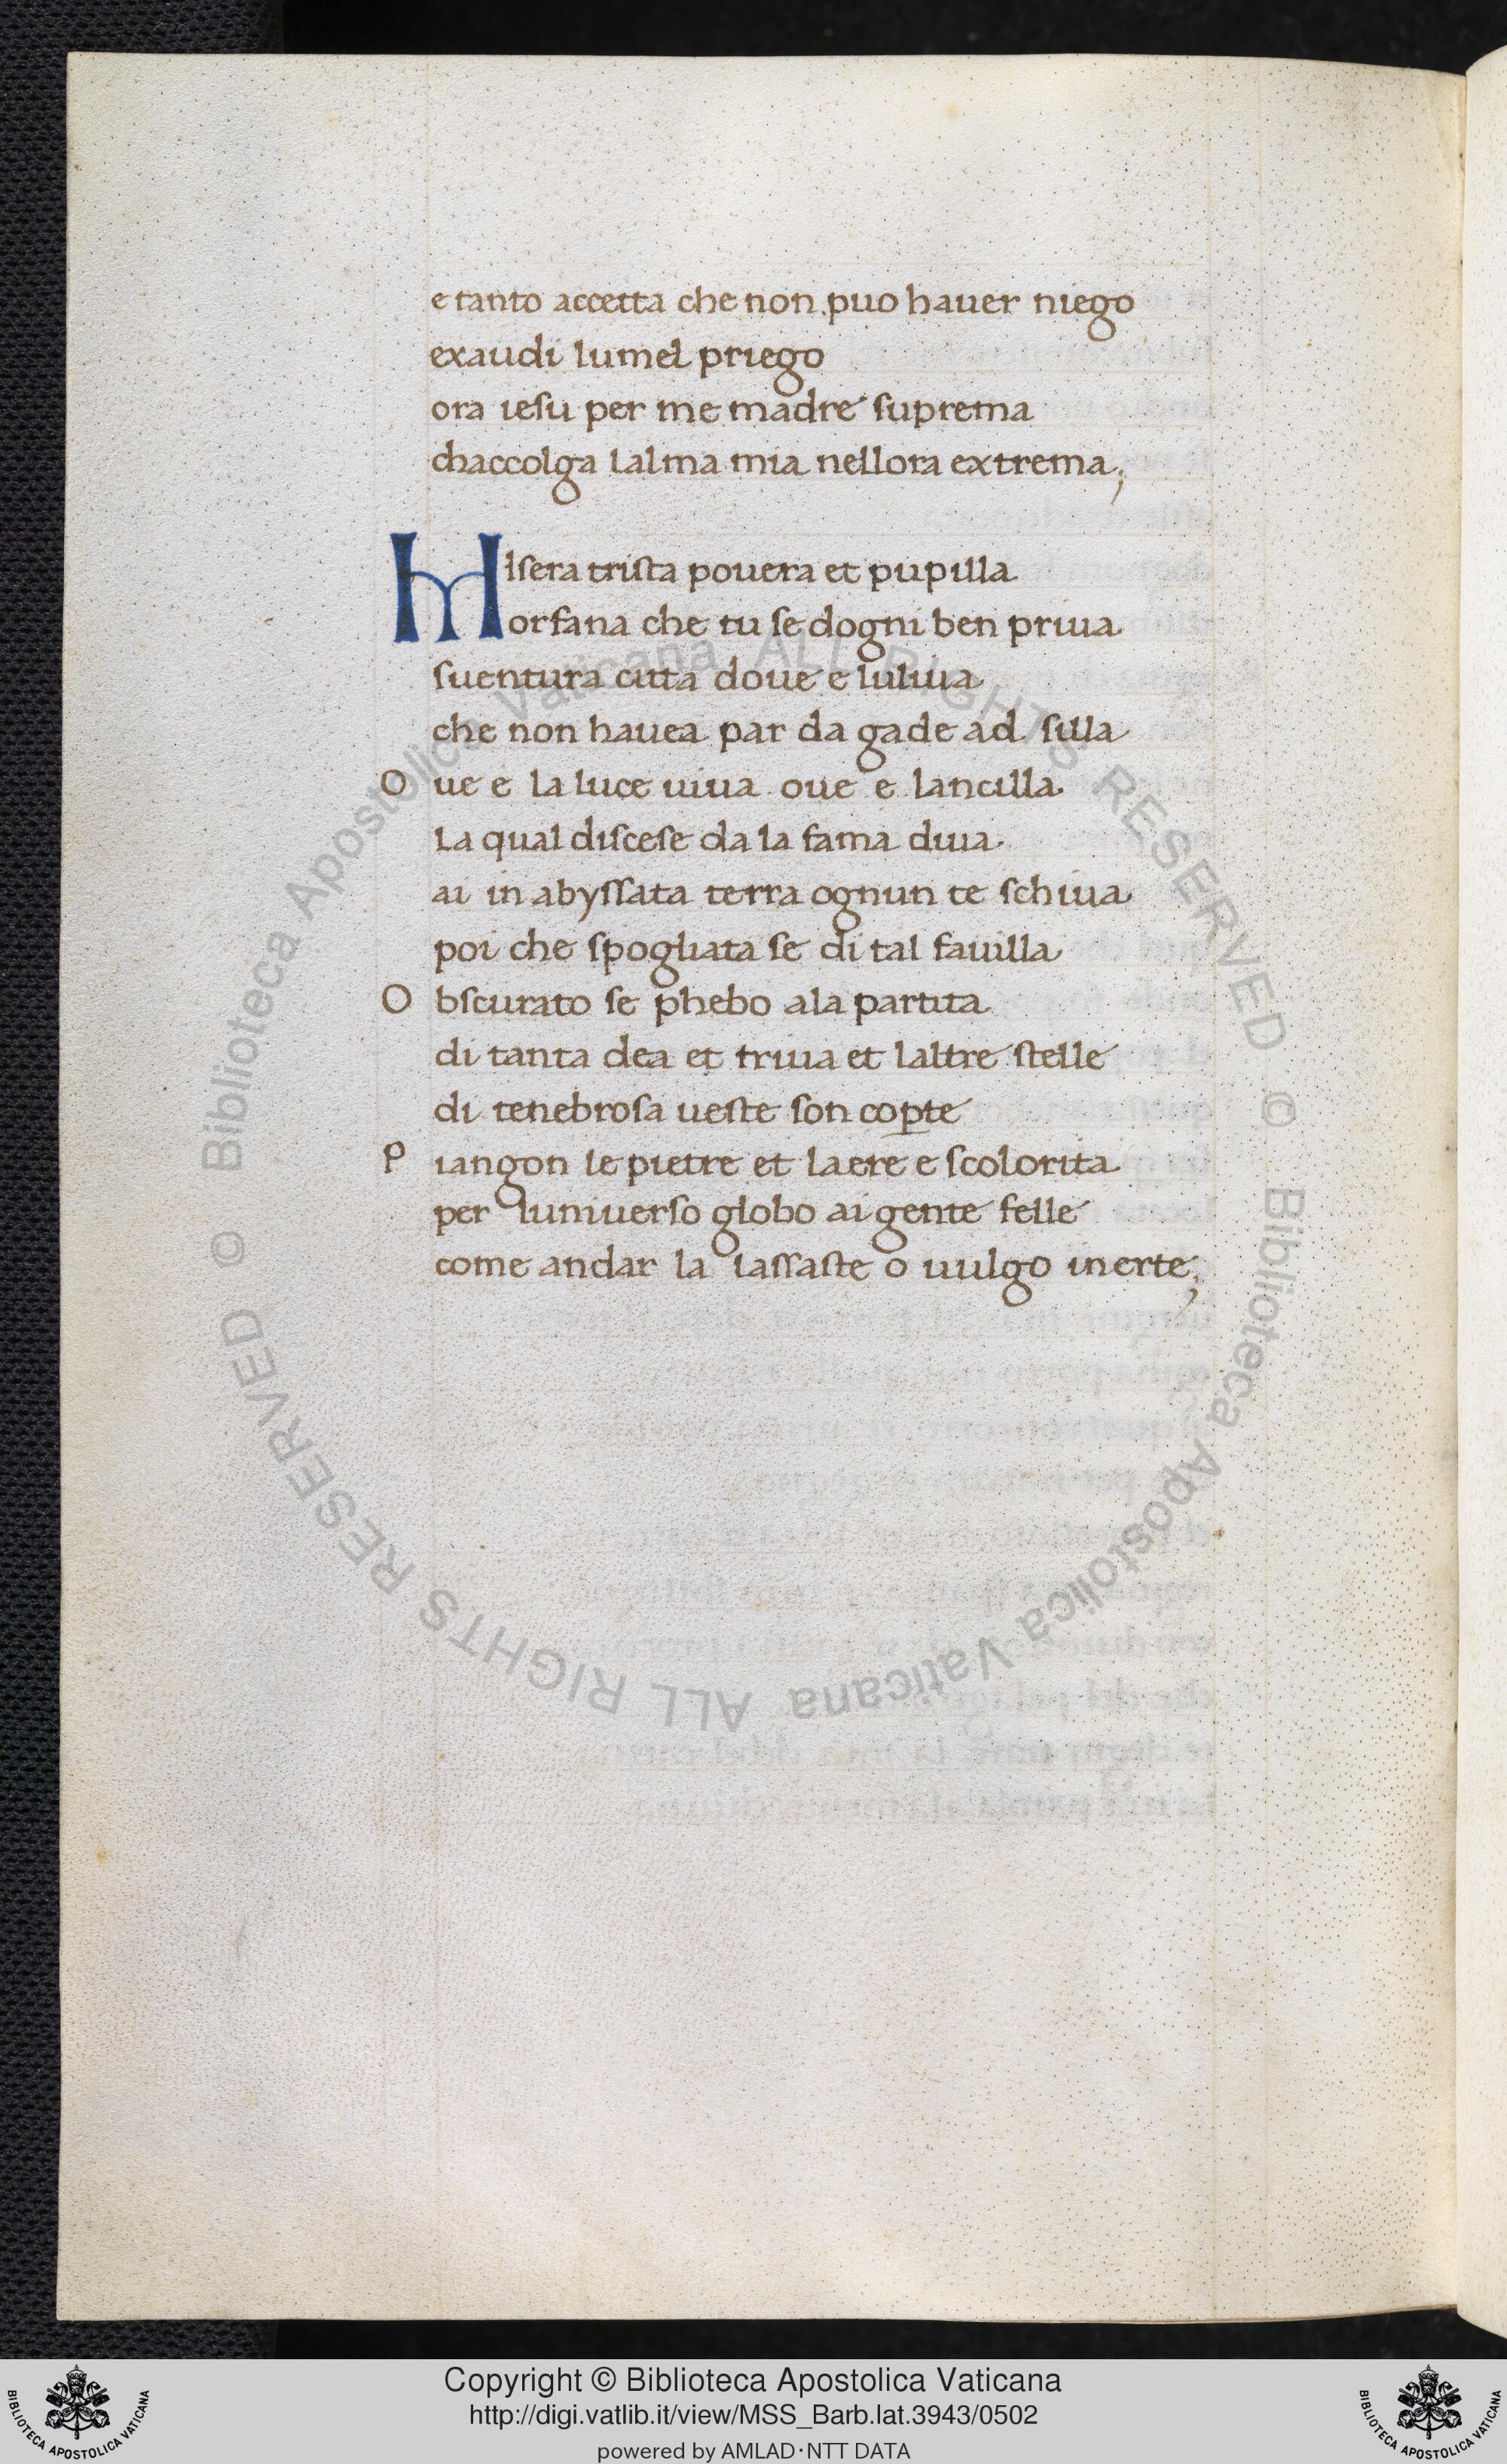 e tanto accetta che non puo hauer niego
exaudi lumel priego
ora iesu per me madre suprema
chaccolga lalma mia nellora extrema;
MIsera trista pouera et pupilla
orfana che tu se dogni ben priua
suentura citta doue e luliua
che non hauea par da gade ad silla
O ue e la luce uiua oue e lancilla
La qual discese da la fama diua
ai in abyssata terra ognun te schiua
poi che spogliata se di tal fauilla
O bscurato se phebo ala partita
di tanta dea et triuia et laltre stelle
di tenebrosa ueste son cop̱te
P iangon le pietre et laere e scolorita
per luniuerso globo ai gente felle
come andar la lassaste o uulgo inerte;
© Biblioteca Apostolica Vaticana ALL RIGHTS RESERVED © Biblioteca Apostolica Vaticana ALL RIGHTS RESERVED
Copyright © Biblioteca Apostolica Vaticana
http://digi.vatlib.it/view/MSS_Barb.lat.3943/0502
powered by AMLAD·NTT DATA
BIBLIOTECA APOSTOLICA VATICANA
BIBLIOTECA APOSTOLICA VATICANA